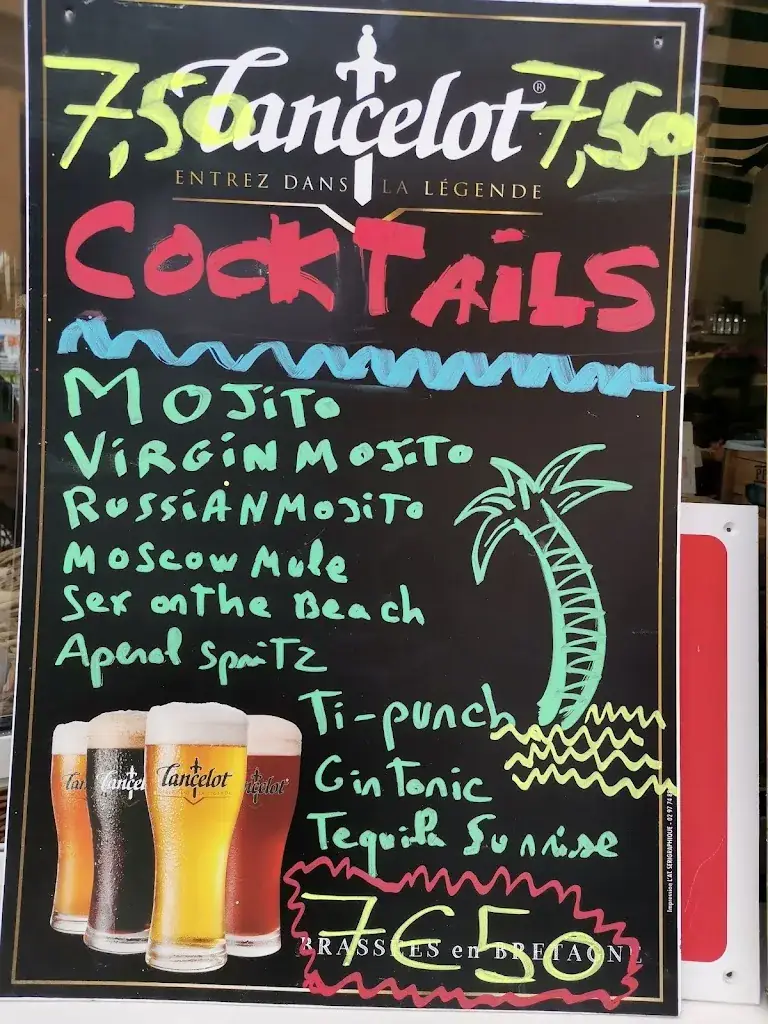 7,50 Lancelot® 7,50
ENTREZ DANS LA LÉGENDE
COCKTAiLS
MOJiTO
ViRGiN MOJiTO
RUSSiAN MOJiTO
Moscow Mule
Sex on the Beach
Aperol SpriTZ
Ti-punch
Gin Tonic
Tequila Sunrise
Lancelot
Lancelot
7€50
BRASSÉES en BRETAGNE